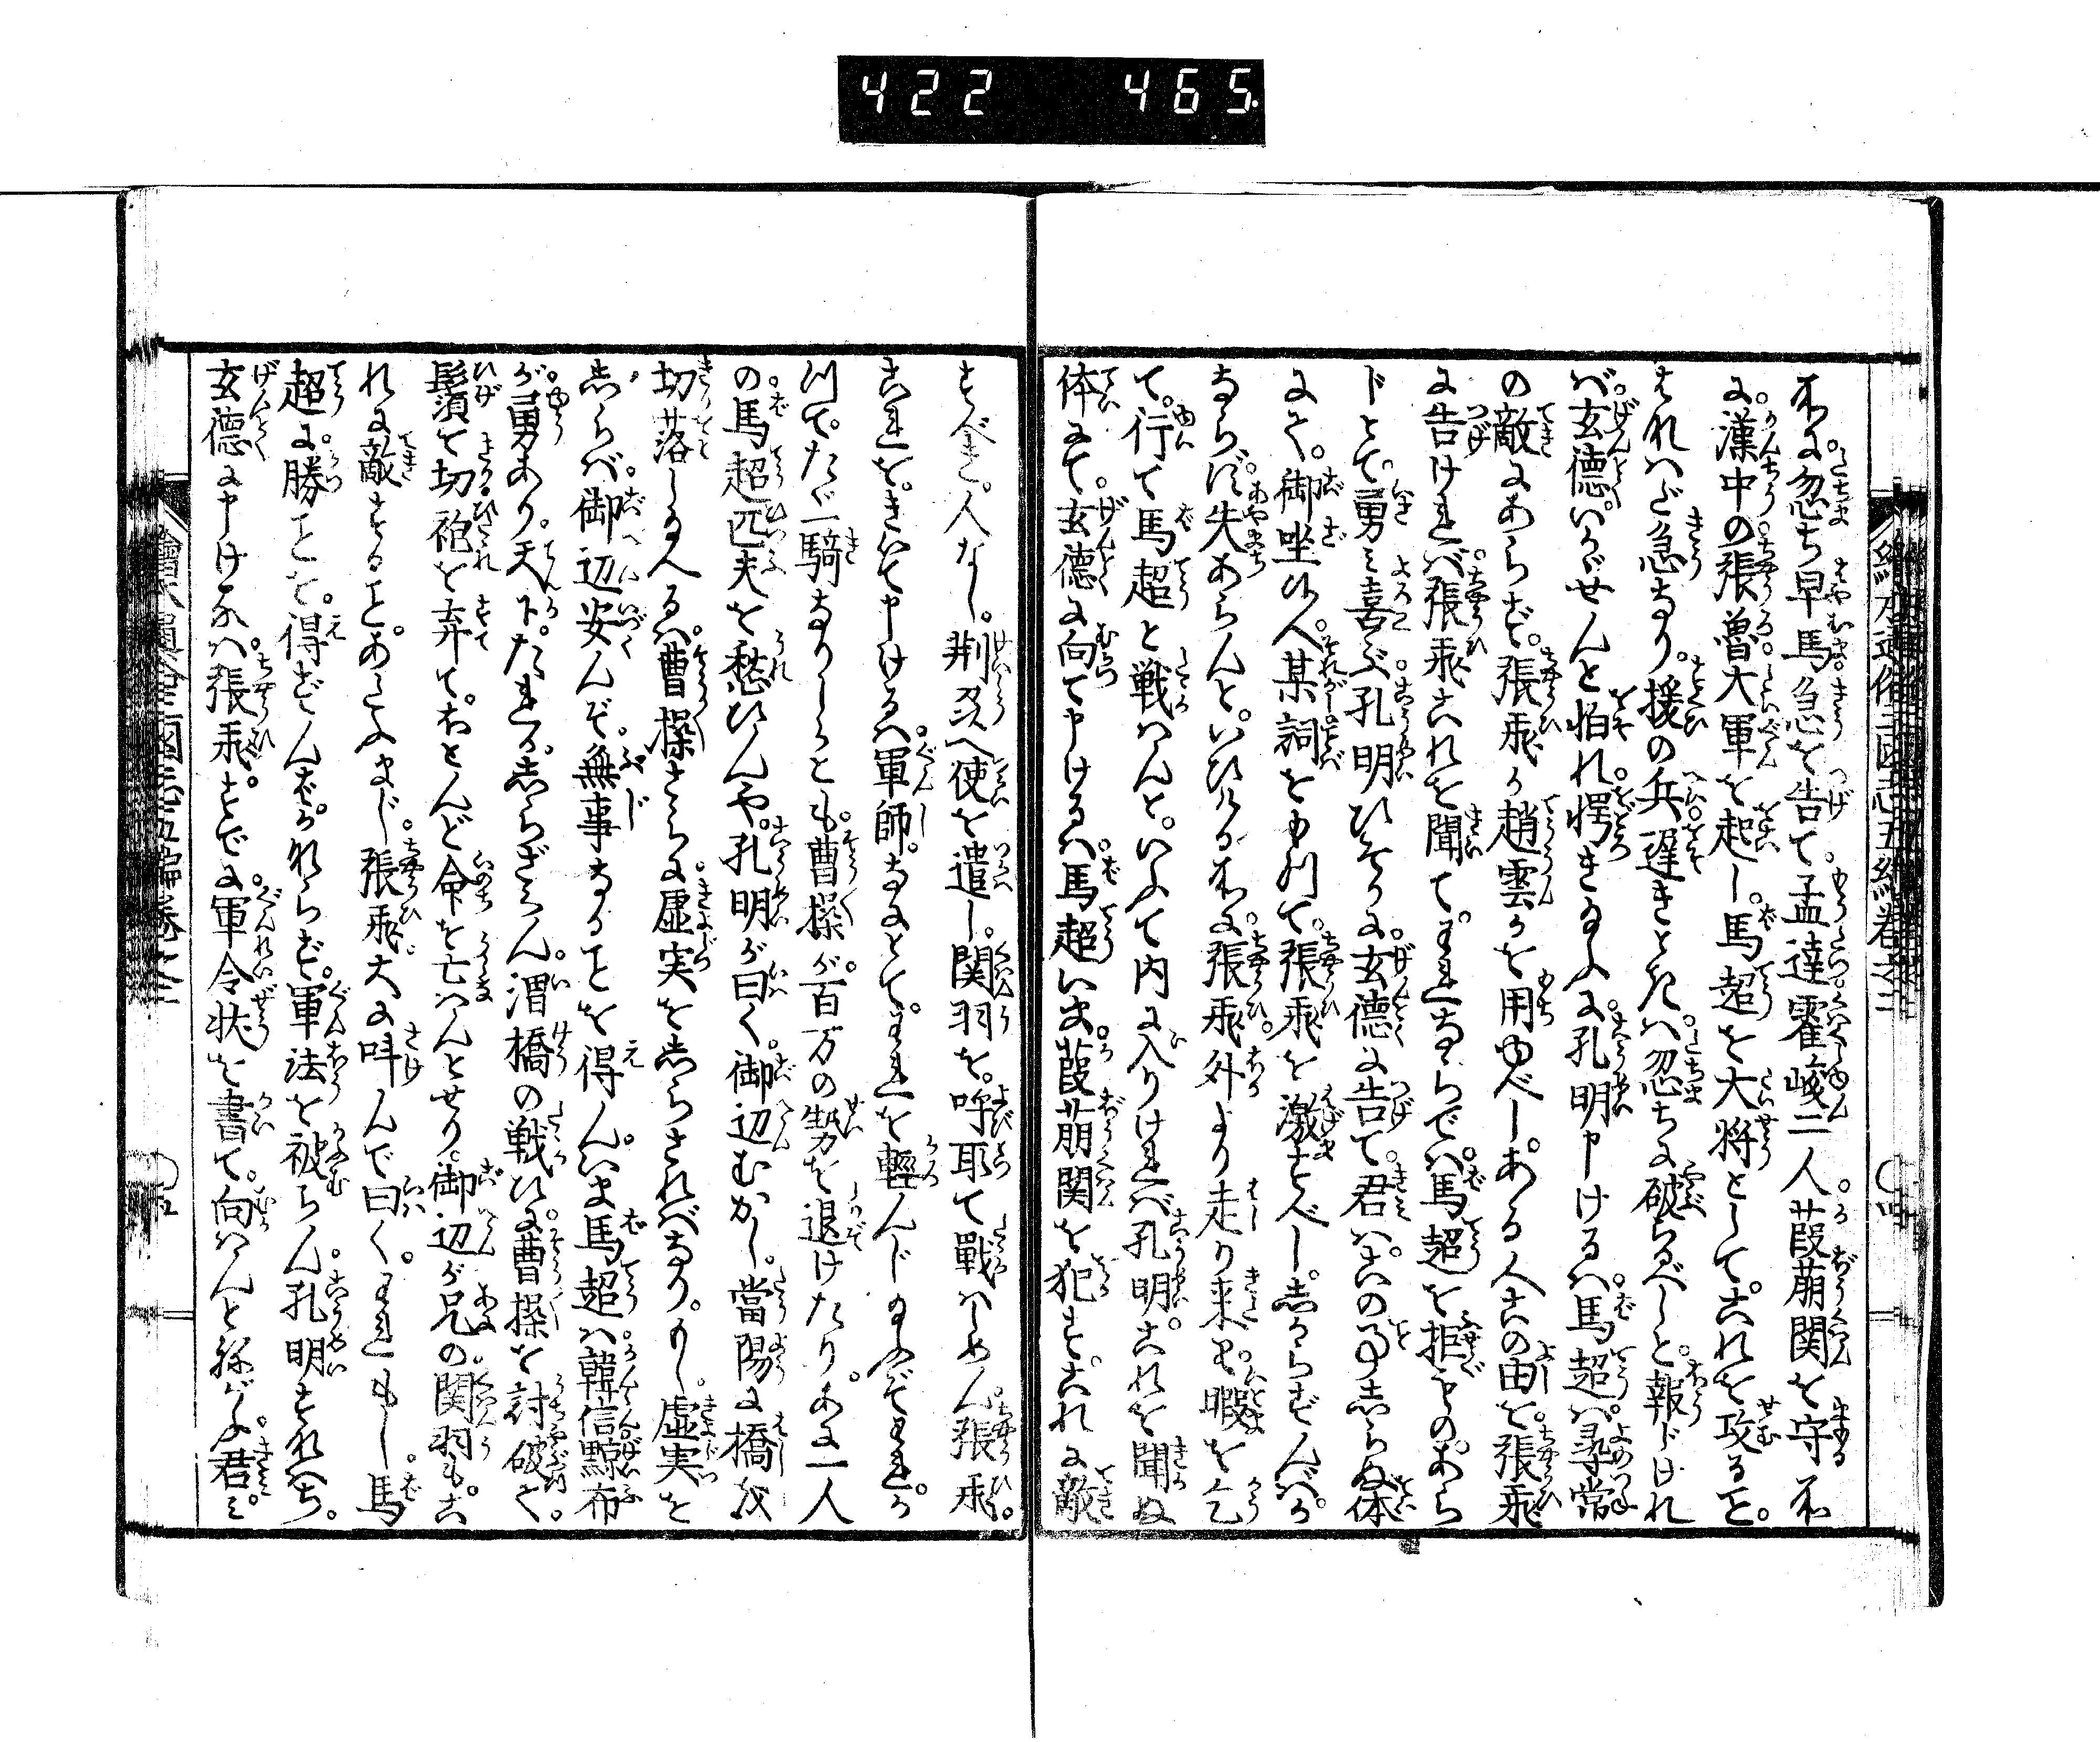 422 465
繪本通俗三國志五編卷之二
处に忽ち早馬急を告て孟達霍峻二人葭萠関を守る処
に漢中の張魯大軍を起し馬超を大将としてこれを攻ること
はなはだ急なり援の兵遅きときは忽ちに破らるべしと報じけれ
ば玄德いかゞせんと怕れ愕き玉ふに孔明申けるハ馬超ハ尋常
の敵にあらず張飛か趙雲かを用ゆべしある人この由を張飛
に告けれバ張飛これを聞てわれならでハ馬超を拒ぐものあら
じとて勇み喜ぶ孔明ひそかに玄德に告て君ハこの事しらぬ体
にて御坐候へ某詞をもつて張飛を激すべししからずんバか
ならず失あらんといひける処に張飛外より走り来り暇を乞
て行て馬超と戦ハんといふて内に入りけれバ孔明これを聞ぬ
体にて玄德に向て申けるハ馬超いま葭萠関を犯すこれに敵
すべき人なし荆州へ使を遣し関羽を呼取て戰ハしめん張飛
これをきいて申けるハ軍師なにとてわれを輕んじ玉ふぞわれか
つてたゞ一騎なりしかとも曹操が百万の勢を退けたりあに一人
の馬超匹夫を愁ひんや孔明が曰く御辺むかし當陽に橋を
切落し玉へるハ曹操さらに虚実をしらざれバなりもし虚実を
しらバ御辺安んぞ無事なることを得んいま馬超ハ韓信黥布
が勇あり天下たれかしらざらん渭橋の戦ひに曹操を討破て
髯須を切袍を弃てほとんど命を亡ハんとせり御辺が兄の関羽もこ
れに敵することあたふまじ張飛大に呌んで曰くわれもし馬
超に勝ことを得ずんばかならず軍法を被らん孔明すなハち
玄德に申けるハ張飛すでに軍令状を書て向ハんと称ず君み
繪本通俗三國志五編卷之二